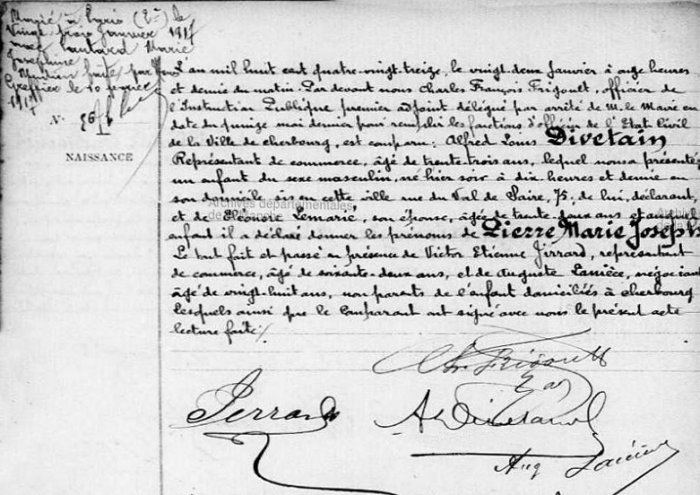 Marié à Paris (2e) le
Vingt trois Janvier 1917
avec Lautard Marie
Joséphine
Mention faite par Nous
Greffier le 10
1917
N° 36
NAISSANCE
L'an mil huit cent quatre-vingt-treize, le vingt-deux janvier à onze heures
et demie du matin. Par devant nous Charles François Frigoult, officier de
l'Instruction Publique premier adjoint délégué par arrêté de M. le Maire en
date du quinze mai dernier pour remplir les fonctions d'officier de l'Etat Civil
de la Ville de Cherbourg, est comparu : Alfred Louis Divetain
Représentant de commerce, âgé de trente-trois ans, lequel nous a présenté
un enfant du sexe masculin, né hier soir à dix heures et demie en
son domicile sis en cette ville rue du Val de Saire, 75, de lui, déclarant,
Archives départementales
et de Lemarié, son épouse, âgée de trente-deux ans et auquel
enfant il a déclaré donner les prénoms de Pierre Marie Joseph
Le tout fait et passé en présence de Victor Etienne Jirrard, représentant
de commerce, âgé de soixante-deux ans, et de Auguste Lanièce, négociant
âgé de vingt-huit ans, non parents de l'enfant domiciliés à Cherbourg
lesquels ainsi que le Comparant ont signé avec nous le présent acte
lecture faite ./.
Ch. Frigoult
Jerrard A. Divetain
Aug Lanièce